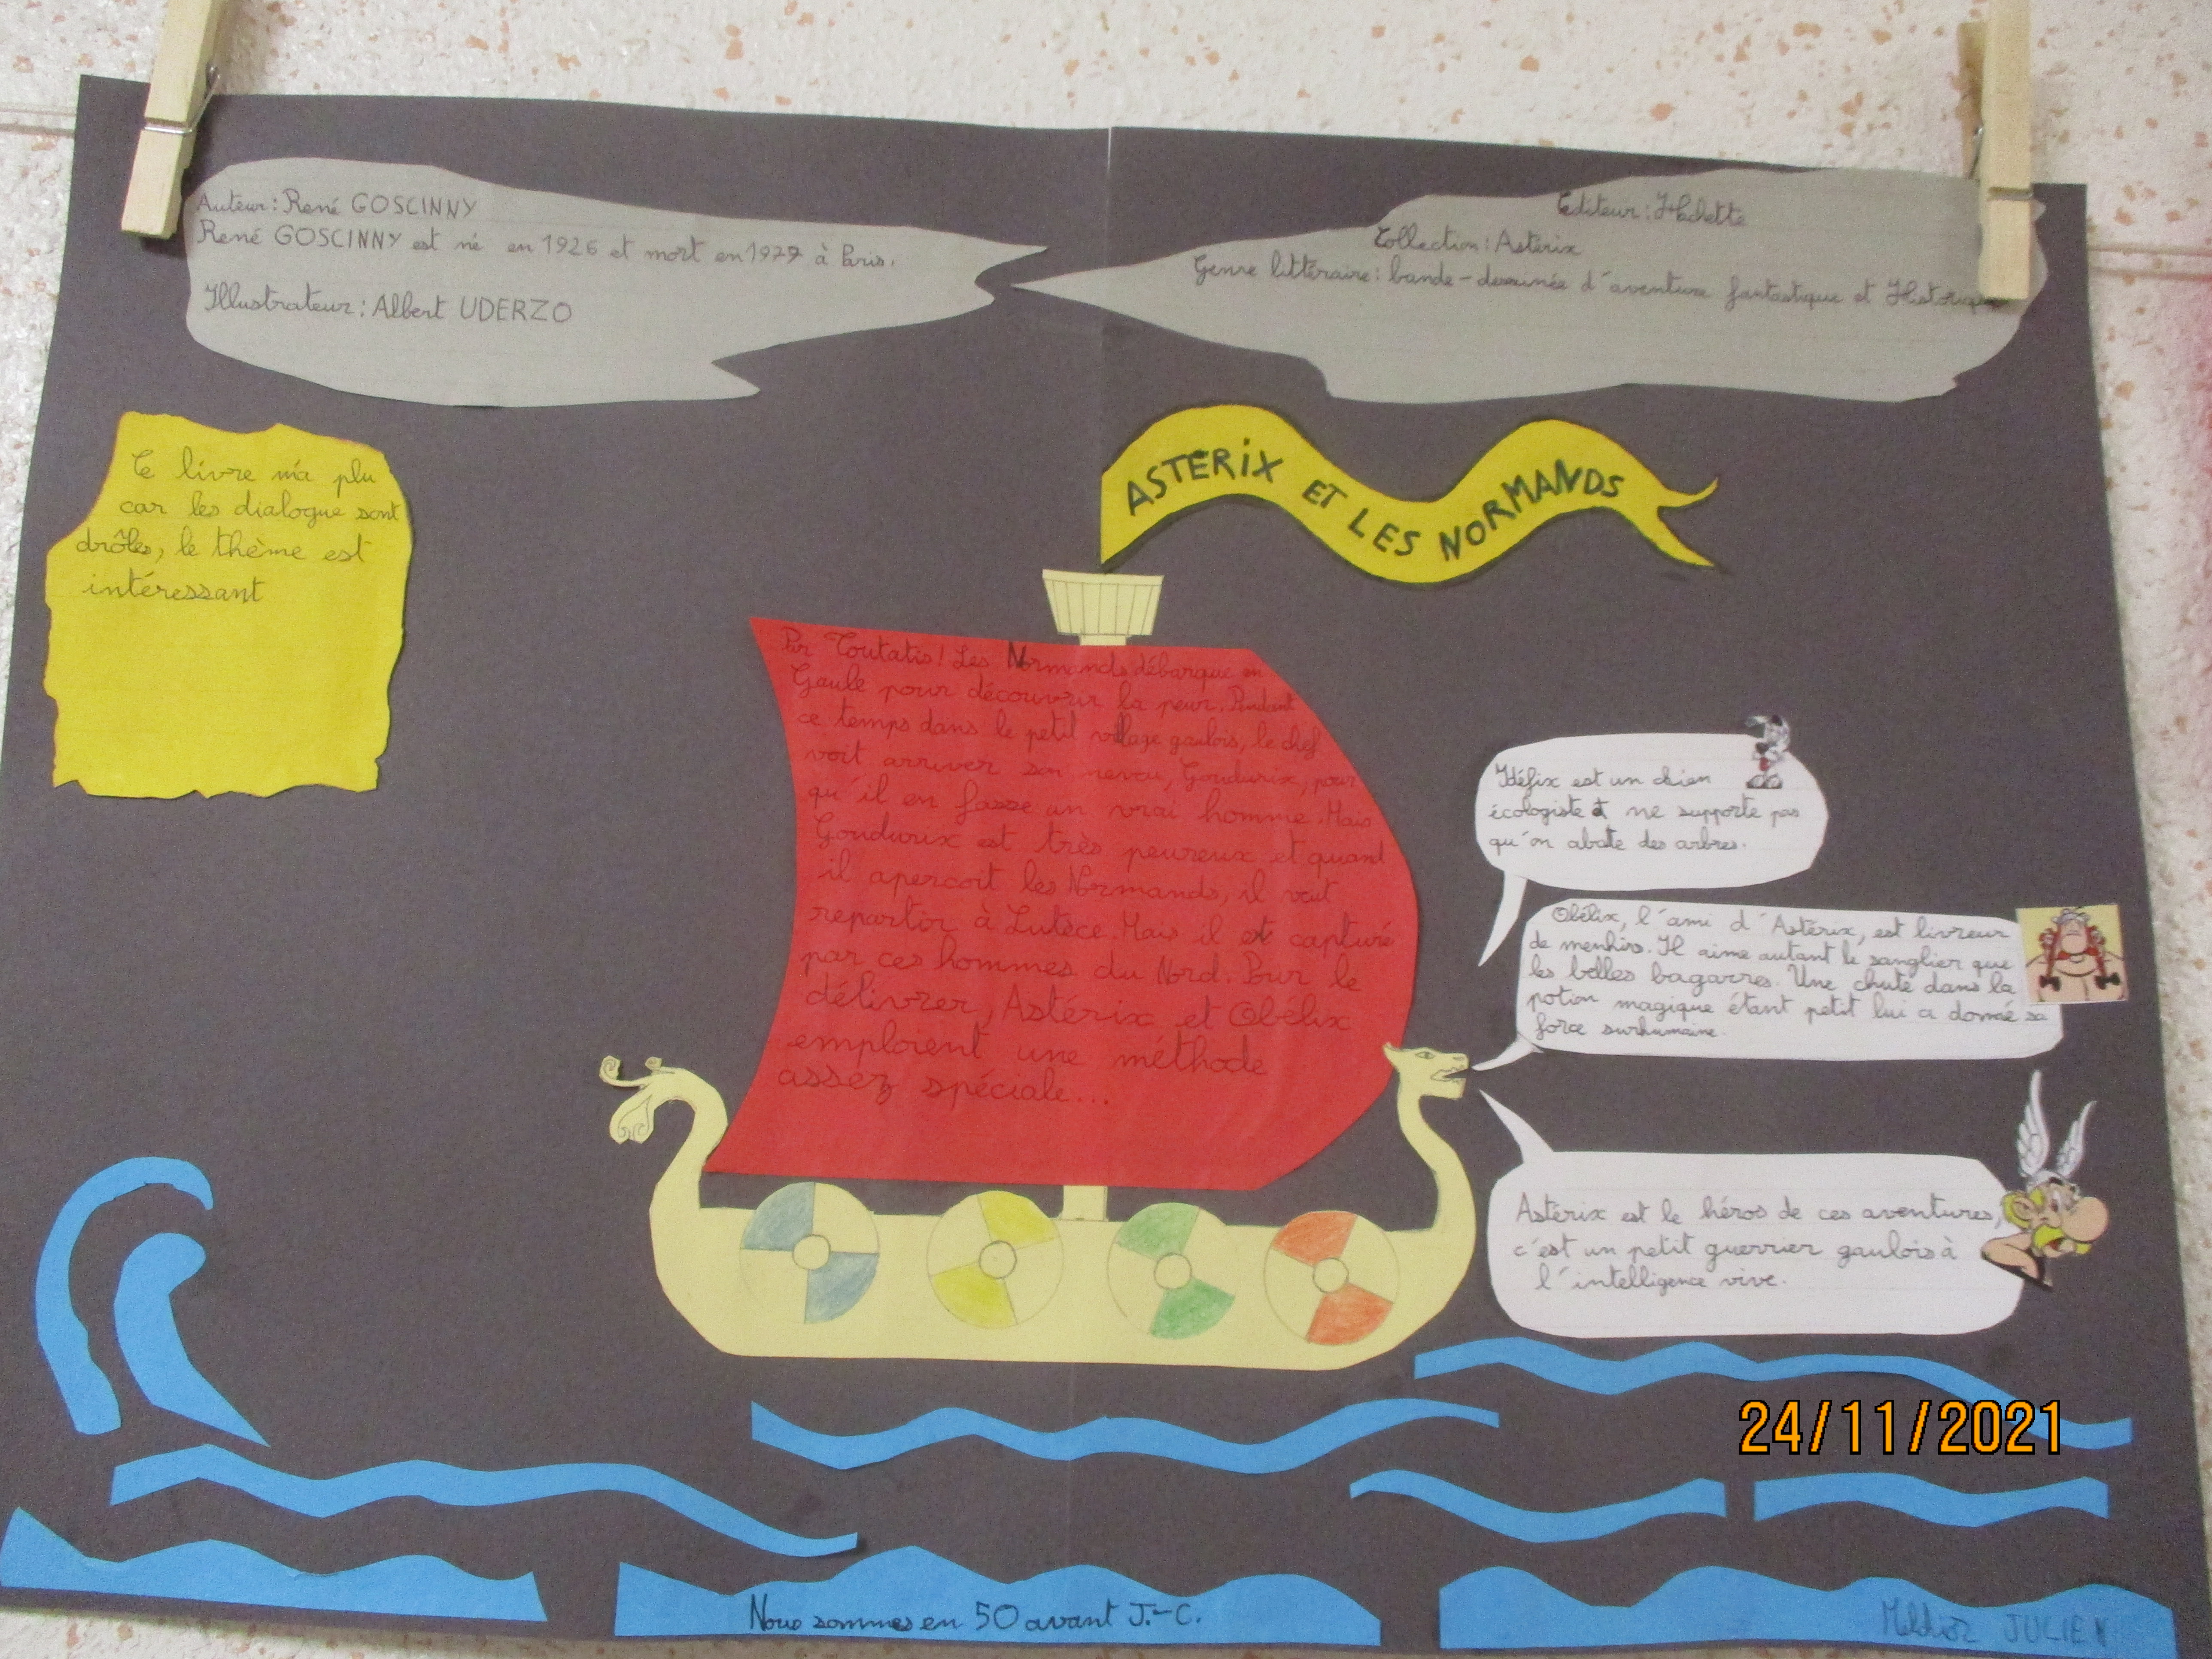 Auteur: René GOSCINNY
René GOSCINNY est né en 1926 et mort en 1977 à Paris.
Illustrateur: Albert UDERZO
Editeur: Hachette
Collection: Astérix
Genre littéraire: bande-dessinée d'aventure fantastique et Historique
ASTÉRIX ET LES NORMANDS
Ce livre m'a plu
car les dialogue sont
drôles, le thème est
intéressant
Par Toutatis! Les Normands débarque en
Gaule pour découvrir la peur. Pendant
ce temps dans le petit village gaulois, le chef
voit arriver son neveu, Goudurix, pour
qu'il en fasse un vrai homme. Mais
Goudurix est très peureux et quand
il apercoit les Normands, il veut
repartir à Lutèce. Mais il est capturé
par ces hommes du Nord. Pour le
délivrer, Astérix et Obélix
emploient une méthode
assez spéciale...
Idéfix est un chien
écologiste et ne supporte pas
qu'on abate des arbres.
Obélix, l'ami d'Astérix, est livreur
de menhirs. Il aime autant le sanglier que
les belles bagarres. Une chute dans la
potion magique étant petit lui a donné sa
force surhumaine.
Astérix est le héros de ces aventures,
c'est un petit guerrier gaulois à
l'intelligence vive.
24/11/2021
Nous sommes en 50 avant J.-C.
JULIEN